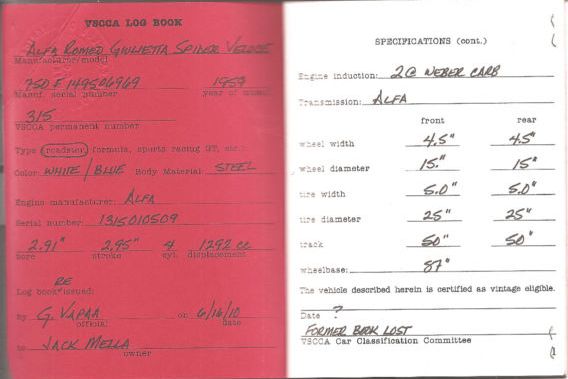 VSCCA LOG BOOK
ALFA ROMEO GIULIETTA SPIDER VELOCE
Manufacturer/model
750 F 149506969 1959
Manuf. serial number year of manuf.
315
VSCCA permanent number
Type (roadster) formula, sports racing GT, etc.:
Color WHITE/BLUE Body Material: STEEL
Engine manufacturer: ALFA
Serial number: 1315010509
2.91" 2.95" 4 1292 cc
bore stroke cyl. displacement
RE
Log book issued:
By G. VAPAA on 6/16/10
official date
to JACK MELLA
owner
SPECIFICATIONS (cont.)
Engine induction: 2@ WEBER CARB
Transmission: ALFA
front rear
wheel width 4.5" 4.5"
wheel diameter 15." 15"
tire width 5.0" 5.0"
tire diameter 25" 25"
track 50" 50"
wheelbase: 87"
The vehicle described herein is certified as vintage eligible.
Date ?
FORMER BOOK LOST
VSCCA Car Classification Committee